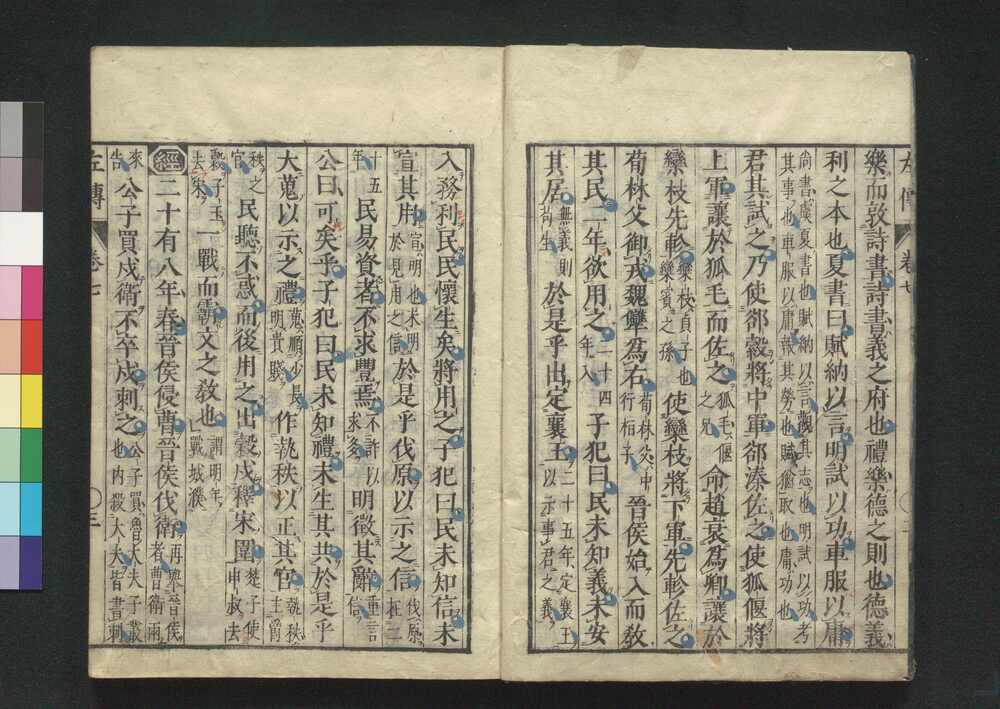 樂而敦詩書詩書義之府也禮樂德之則也德義
利之本也夏書曰賦納以言明試以功車服以庸
尚書虞夏書也賦納以言觀其志也明試以功考
其事也車服以庸報其勞也賦猶取也庸功也
君其試之乃使郤縠將中軍郤溱佐之使狐偃將
上軍讓於狐毛而佐之狐毛偃之兄命趙衰爲卿讓於
欒枝先軫欒枝貞子也欒賓之孫使欒枝將下軍先軫佐之
荀林父御戎魏犨爲右荀林父中行桓子晉侯始入而教
其民二年欲用之二十四年入子犯曰民未知義未安
其居無義則苟生於是乎出定襄王二十五年定襄王以示事君之義
入務利民民懷生矣將用之子犯曰民未知信未
宣其用宣明也未明於見用之信於是乎伐原以示之信伐原在二
十五年民易資者不求豐焉不詐以求多明徵其辭重言信
公曰可矣乎子犯曰民未知禮未生其共於是乎
大蒐以示之禮蒐順少長明貴賤作執秩以正其官執秩主爵
秩之官民聽不惑而後用之出穀戍釋宋圍楚子使申叔去
穀子玉去宋一戰而霸文之教也謂明年戰城濮
經二十有八年春晉侯侵曹晉侯伐衛再舉晉侯者曹衛兩
來告公子買戍衛不卒戍刺之公子買魯大夫子叢也內殺大夫皆書刺
左傳 卷七 三